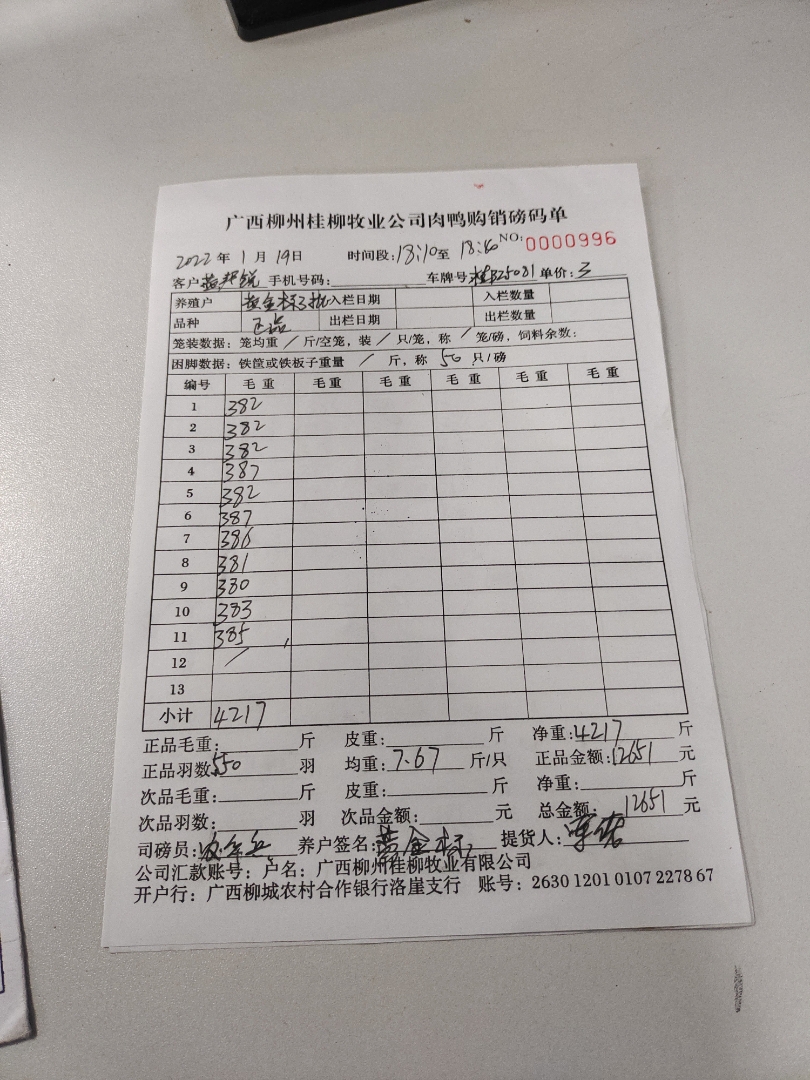 广西柳州桂柳牧业公司肉鸭购销磅码单
2022 年 1 月 19日 时间段:18:10至 18:40 NO: 0000996
客户 手机号码: 车牌号 25081 单价:3
养殖户 入栏日期 入栏数量
品种 正品 出栏日期 出栏数量
笼装数据: 笼均重 / 斤/空笼, 装 / 只/笼, 称 / 笼/磅, 饲料余数:
困脚数据: 铁筐或铁板子重量 / 斤, 称 50 只/磅
编号 毛重 毛重 毛重 毛重 毛重 毛重
1 382
2 382
3 382
4 387
5 382
6 387
7 386
8 381
9 380
10 383
11 385
12 /
13
小计 4217
正品毛重: 斤 皮重: 斤 净重:4217 斤
正品羽数:550 羽 均重:7.67 斤/只 正品金额:12651 元
次品毛重: 斤 皮重: 斤 净重: 斤
次品羽数: 羽 次品金额: 元 总金额: 12651 元
司磅员: 养户签名: 提货人:
公司汇款账号: 户名: 广西柳州桂柳牧业有限公司
开户行: 广西柳城农村合作银行洛崖支行 账号: 2630 1201 0107 2278 67